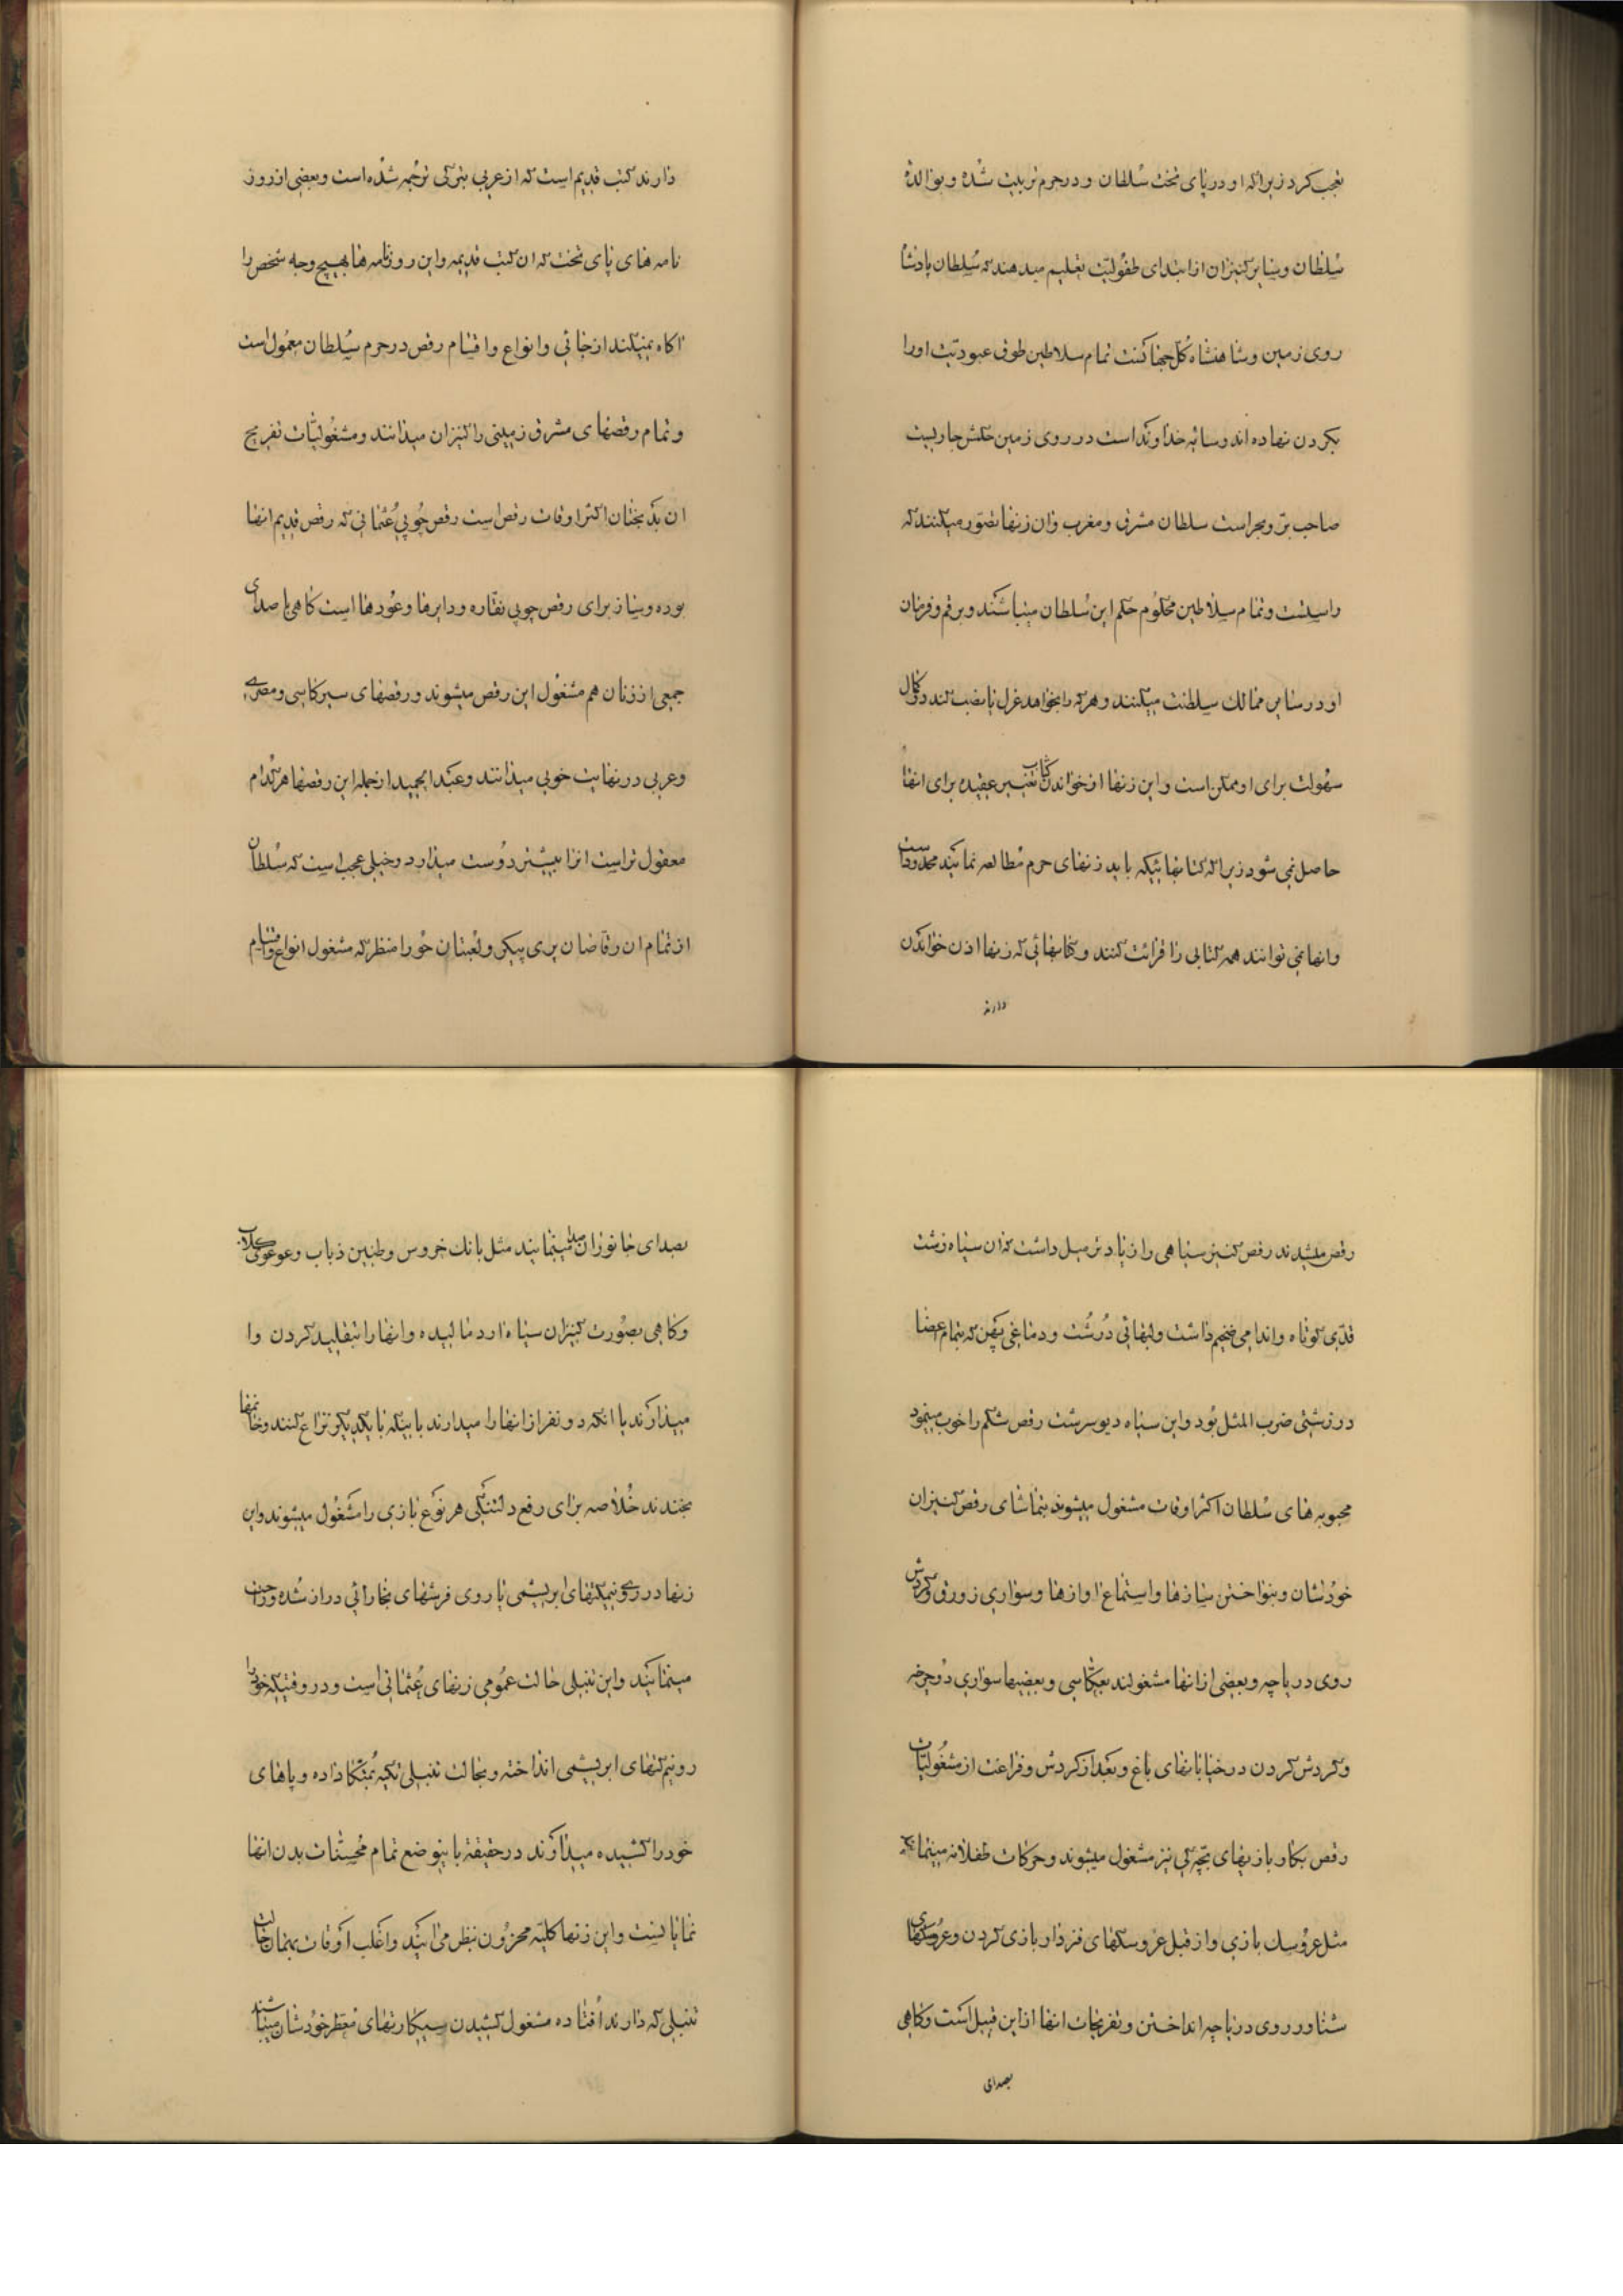 تعجب کرد زیرا که او در پای تخت سلطان و در حرم تربیت شده و بوالدهٔ
سلطان و سایر کنیزان از ابتدای طفولیت تعلیم میدهند که سلطان پادشاه
روی زمین و شاهنشاه کل جهانست تمام سلاطین طوق عبودیت او را
بکردن نهاده اند و سایه خداوند است در روی زمین حکمش جاریست
صاحب بر و بحر است سلطان مشرق و مغرب و ان زنها تصور میکنند که
راست است و تمام سلاطین محکوم حکم این سلطان میباشند و برقم و فرمان
او در سایر ممالک سلطنت میکنند و هر که را بخواهد عزل یا نصب کند در کمال
سهولت برای او ممکن است و این زنها از خواندن کتاب تغییر عقیده برای انها
حاصل نمی شود زیرا که کتابهائیکه باید زنهای حرم مطالعه نمایند محدود است
و انها نمی توانند همه کتابی را قرائت کنند و کتابهائی که زنها اذن خواندن
دارند
دارند کتب قدیم است که از عربی بترکی ترجمه شده است و بعضی از روز
نامه های پای تخت که ان کتب قدیمه و این روزنامه ها بهیچ وجه شخص را
اکاه نمیکند از جائی و انواع و اقسام رقص در حرم سلطان معمول است
و تمام رقصهای مشرق زمینی را کنیزان میدانند و مشغولیات تفریح
ان بدبختان اکثر اوقات رقص است رقص چوبی عثمانی که رقص قدیم انها
بوده و ساز برای رقص چوبی نقاره و دایرها و عودها است کاهی با صدای
جمعی از زنان هم مشغول این رقص میشوند و رقصهای سیرکاسی و مصری
و عربی در نهایت خوبی میدانند و عبد الحمید از جمله این رقصها هر کدام
معقول تر است انرا بیشتر دوست میدارد و خیلی عجب است که سلطان
از تمام ان رقاصان پری پیکر و لعبتان حورا منظر که مشغول انواع و اقسام
رقص میشدند رقص کنیز سیاهی را زیادتر میل داشت که ان سیاه زشت
قدی کوتاه و اندامی ضخیم داشت و لبهائی درشت و دماغی پهن که بتمام اعضا
در زشتی ضرب المثل بود و این سیاه دیو سرشت رقص شکم را خوب مینمود
محبوبه های سلطان اکثر اوقات مشغول میشوند بتماشای رقص کنیزان
خودشان و بنواختن سازها و استماع اوازها و سواری زورق و کردش
روی دریاچه و بعضی از انها مشغولند بعکاسی و بعضیها سواری دوچرخه
و کردش کردن در خیابانهای باغ و بعد از کردش و فراغت از مشغولیات
رقص بکار بازیهای بچه کی نیز مشغول میشوند و حرکات طفلانه مینمایند
مثل عروسک بازی و از قبل عروسکهای فنردار بازی کردن و عروسکهای
شناور روی دریاچه انداختن و تفریحات انها از این قبیل است و کاهی
بصدای
بصدای جانوران صدا مینمایند مثل بانک خروس و طنین ذباب و عوعوی کلاب
و کاهی بصورت کنیزان سیاه ارد مالیده و انها را بتقلید کردن وا
میدارند یا انکه دو نفر از انها را میدارند باینکه با یکدیکر نزاع کنند و خانمها
بخندند خلاصه برای رفع دلتنکی هر نوع بازی را مشغول میشوند و این
زنها در روی نیمکتهای ابریشمی یا روی فرشهای بخارائی دراز شده
مینمایند و این تنبلی حالت عمومی زنهای عثمانی است و در وقتیکه خود را
رو نیم کتهای ابریشمی انداخته و بحالت تنبلی تکیه بمتکا داده و پاهای
خود را کشیده میدارند در حقیقة باینوضع تمام محسنات بدن انها
نمایانست و این زنها کلیّه محزون بنظر می ایند و اغلب اوقات بهمان حالت
تنبلی که دارند افتاده مشغول کشیدن سیکارتهای معطر خودشان میباشند